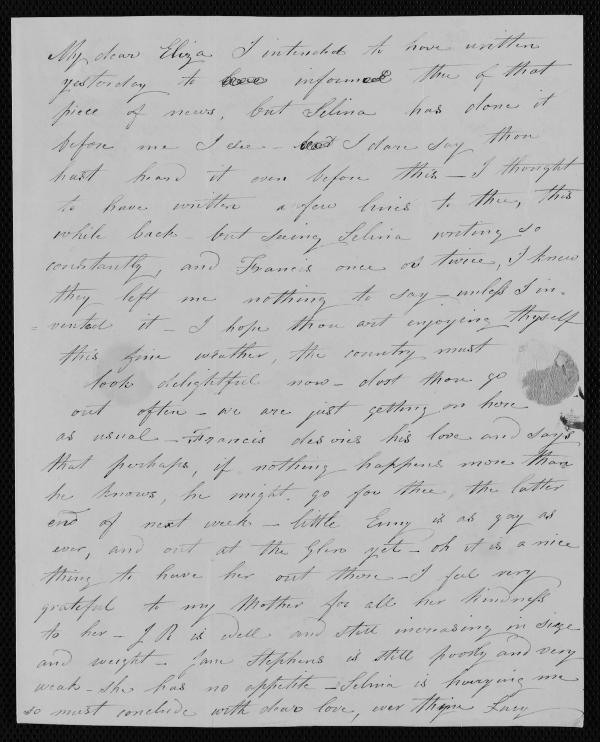 My dear Eliza I intended to have written
yesterday to have informed thee of that
piece of news, but Selina has done it
before me I see - but I dare say thou
hast heard it even before this - I thought
to have written a few lines to thee, this
while back - but seeing Selina writing so
constantly, and Francis once or twice, I knew
they left me nothing to say - unless I in-
=vented it - I hope thou art enjoying thyself
this fine weather, the country must
look delightful now - dost thou go
out often - we are just getting on here
as usual - Francis desires his love and says
that perhaps, if nothing happens more than
he knows, he might go for thee, the latter
end of next week - little Enny is as gay as
ever, and out at the Glen yet - oh it is a nice
thing to have her out there - I feel very
grateful to my Mother for all her kindness
to her - J R is well and still increasing in size
and weight - Jane Stephens is still poorly and very
weak - she has no appetite - Selina is hurrying me
so must conclude with dear love, ever thine Lucy